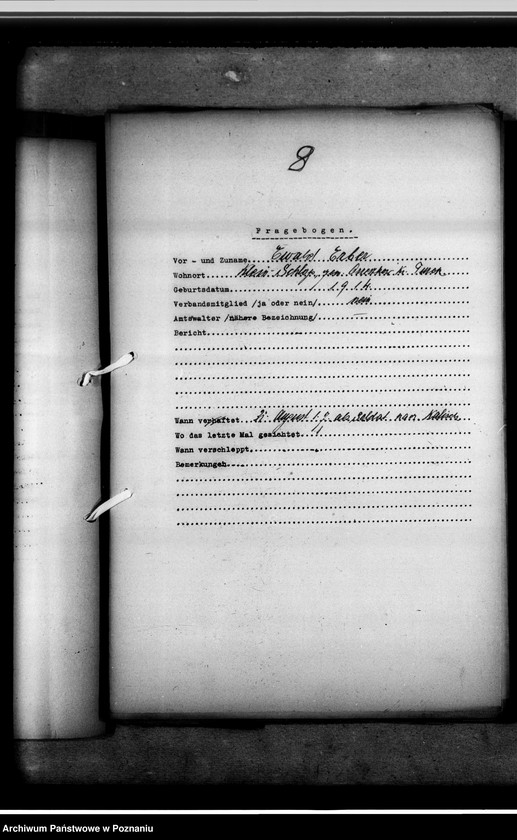 8
Fragebogen.
Vor - und Zuname Ewald Erber
Wohnort Klein-
Geburtsdatum 1.9.14.
Verbandsmitglied /ja oder nein/ nein
Amtswalter /nähere Bezeichnung/ —
Bericht
Wann verhaftet August als Soldat nach
Wo das letzte Mal gesichtet
Wann verschleppt
Bemerkungen
Archiwum Państwowe w Poznaniu